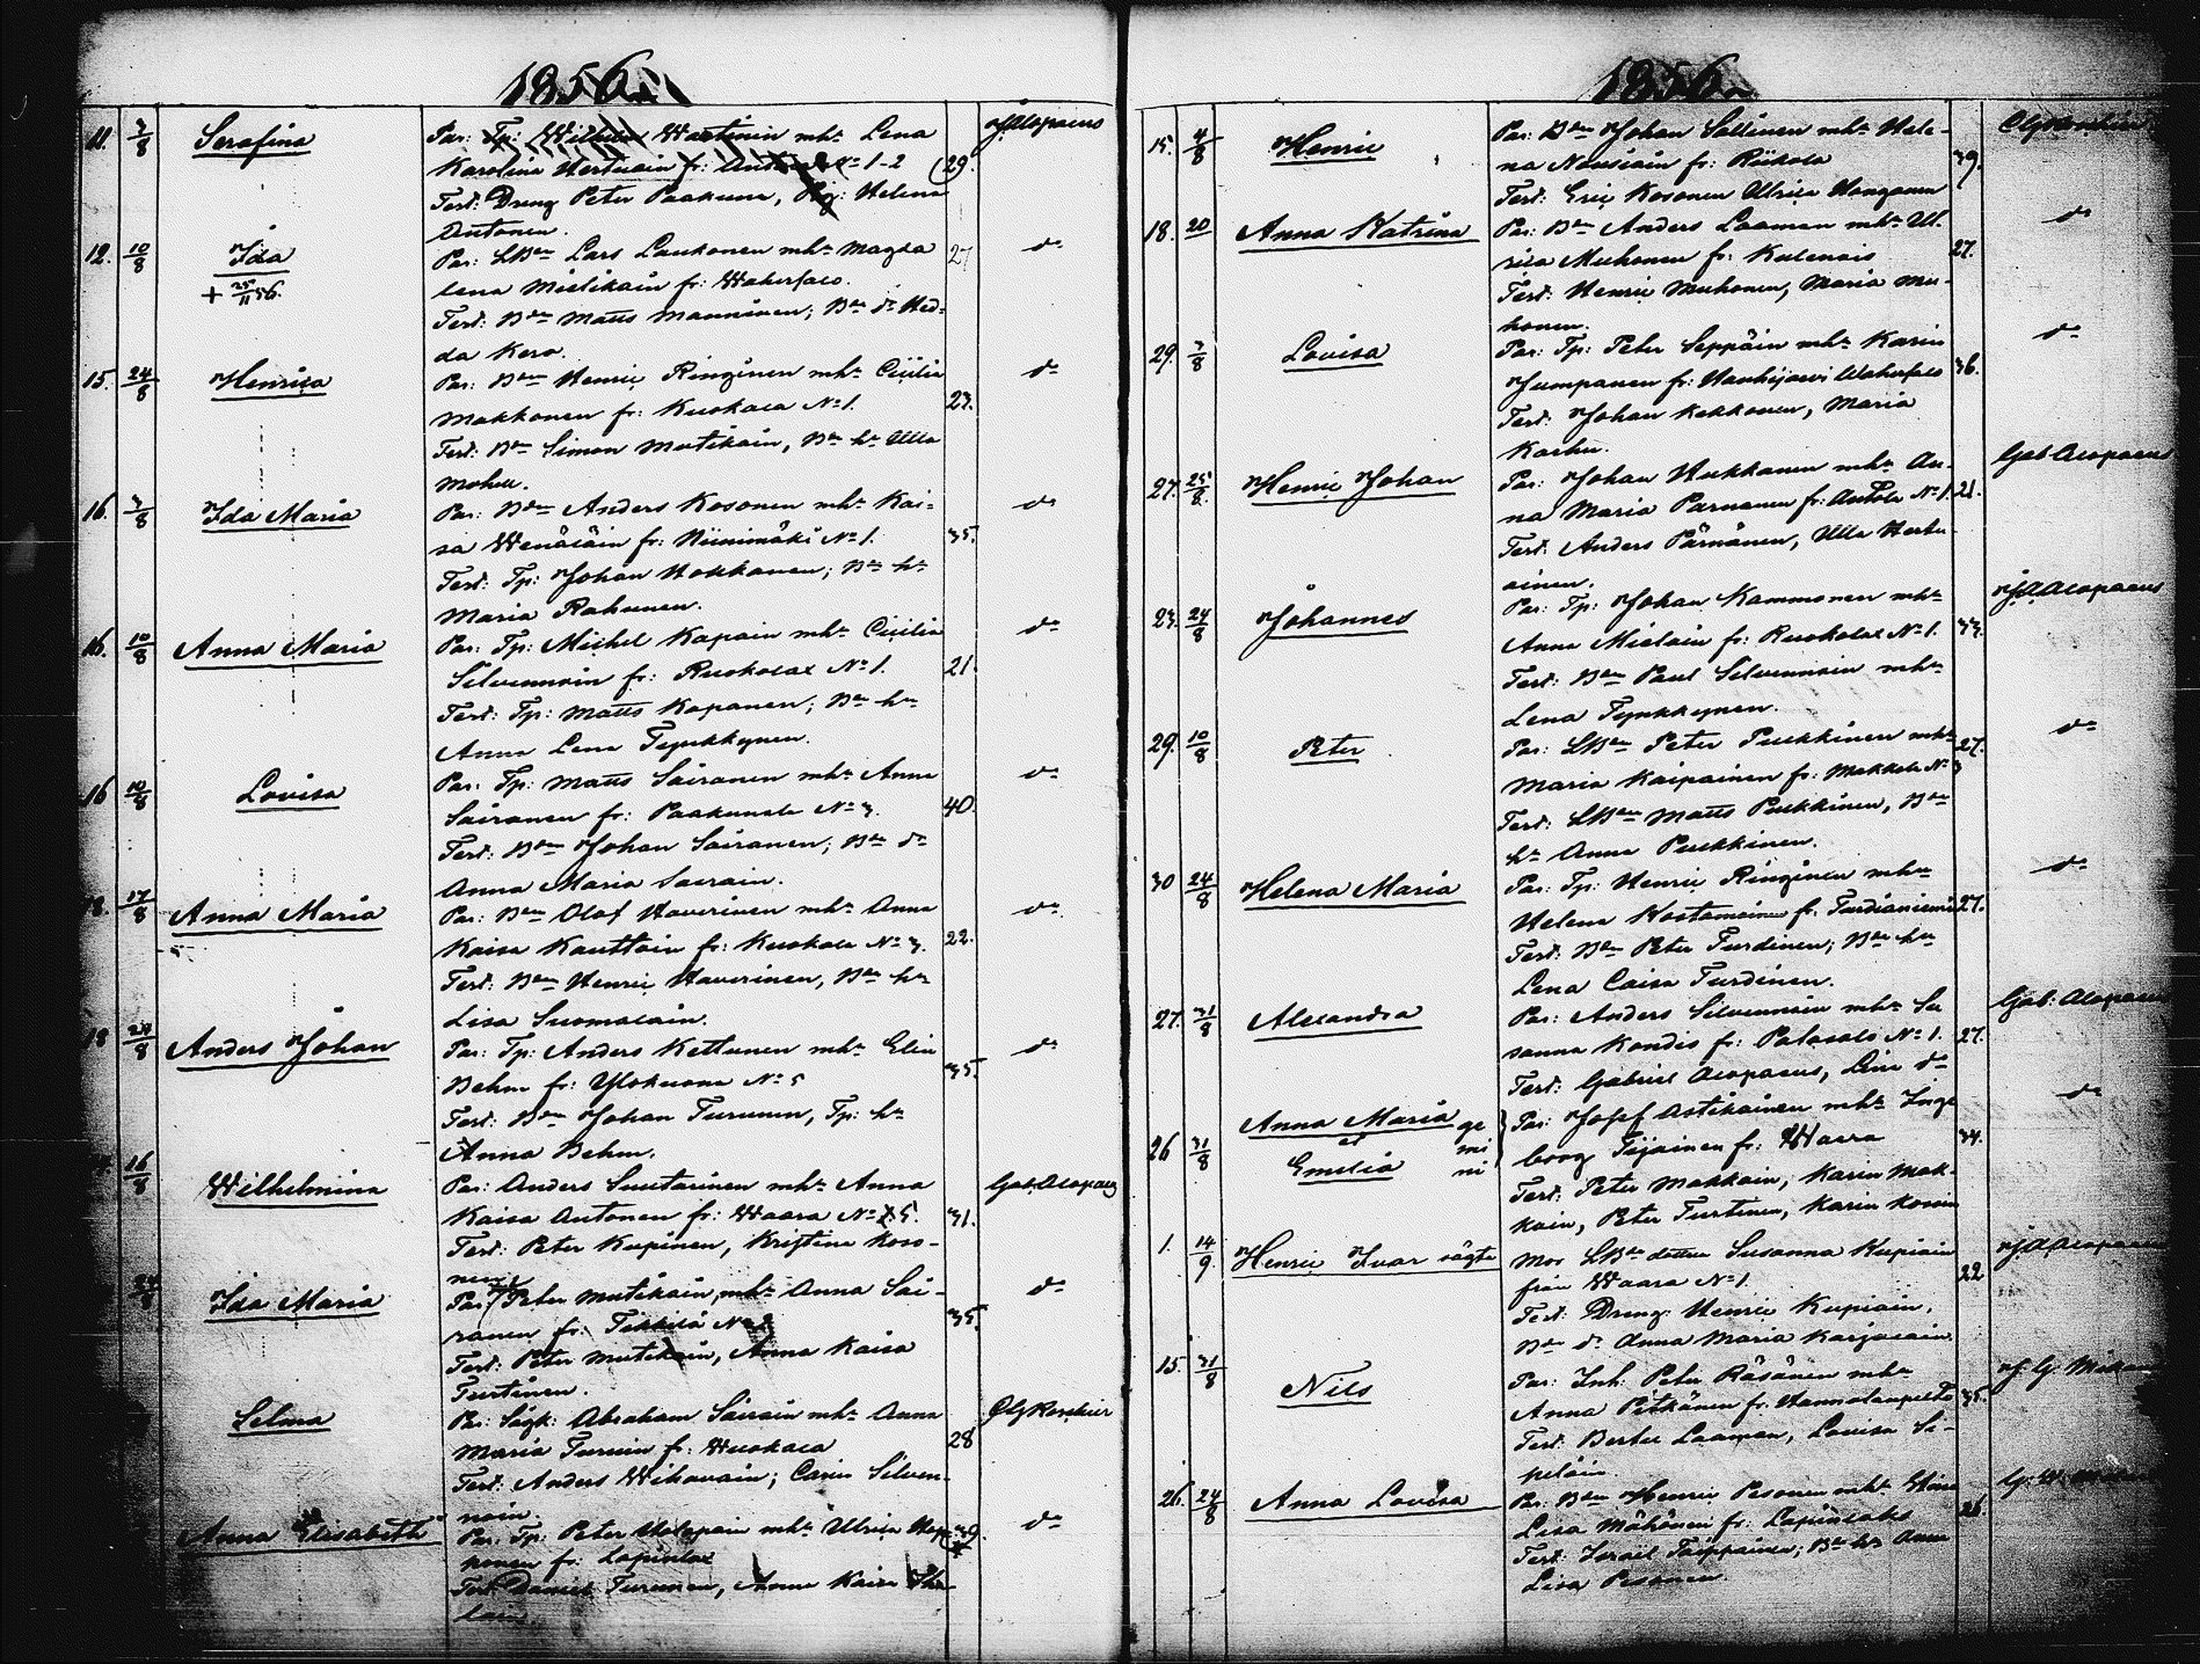 1856.
11. 3/8 Serafina Par: Tp: Wilhelm Wartinin mhu Lena
Karolina Hertuain fr: Antola No 1-2 (29.
Test: Dreng Peter Paakuna, Pig: Helena
Antonen.
J Alopaeus
12. 10/8 Ida Par: LBdn Lars Laukonen mhu Magda
+ 25/11 56. lena Mielikäin fr: Wakersalo. 27
Test: Bdn Matts Manninen; Bdn dr Hed-
da Kero.
do
15. 24/8 Henrica Par: Bdn Henric Ringinen mhu Cicilia
Makkonen fr: Kuokala No 1. 23.
Test: Bdn Simon Mutikain, Bdn hu Ulla
do
16. 3/8 Ida Maria Par: Bdn Anders Kosonen mhu Kai-
sa Wenäläin fr: Niinimäki No 1. 35.
Test: Tp: Johan Hokkanen; Bdn hu
Maria Rahunen.
do
16. 10/8 Anna Maria Par: Tp: Michel Kapain mhu Cicilia
Silvennoin fr: Ruokolax No 1. 21.
Test: Tp: Matts Kapanen; Bdn hu
Anna Lena Tynkkynen.
do
16 10/8 Lovisa Par: Tp: Matts Sairanen mhu Anna
Sairanen fr: Paakunala No 3. 40.
Test: Bdn Johan Sairanen; Bdn dr
Anna Maria Sairain.
do
18. 17/8 Anna Maria Par: Bdn Olof Haverinen mhu Anna
Kaisa Kauttain fr: Kuokala No 3. 22.
Test: Bdn Henric Haverinen, Bdn hu
Lisa Suomalain.
do
18 24/8 Anders Johan Par: Tp: Anders Kettunen mhu Elin
Behm fr: Ylokuona No 5 35.
Test: Bdn Johan Turunen, Tp: hu
Anna Behm.
do
16/8 Wilhelmina Par: Anders Suutarinen mhu Anna
Kaisa Antonen fr: Waara No 5. 31.
Test: Peter Kupinen, Kristina Koso-
nen
Gab. Alopaeus
24/8 Ida Maria Par: Peter Mutikain, mhu Anna Sai-
ranen fr: Tikkilä No 2 35.
Test: Peter Mutikain, Anna Kaisa
Turtinen.
do
Selma Par: Sågk: Abraham Sairain mhu Anna
Maria Turuin fr: Wuokala 28
Test: Anders Wihavain; Carin Silven-
noin.
Anna Elisabeth Par: Tp: Peter Holopain mhu Ulrica Hap
ponen fr: Lapinlax
Test: Daniel Turunen, Anna Kaisa
lain
do
1856.
15. 4/8 Henric Par: Bdn Johan Sallinen mhu Hele-
na Nousiain fr: Riikola 39.
Test: Eric Kosonen Ulrica Honganen
18. 20 Anna Katrina Par: Bdn Anders Laaman mhu Ul-
rica Muhonen fr: Kulenois 27.
Test: Henric Muhonen, Maria Mu-
honen.
do
29. 3/8 Lovisa Par: Tp: Peter Seppäin mhu Karin
Jumpanen fr: Hauhijarvi Wakersalo 36.
Test: Johan Kekkonen, Maria
Karhu.
do
27. 25/8. Henric Johan Par: Johan Hukkanen mhu An-
na Maria Parnanen fr: Antola No 1. 21.
Test: Anders Pärnänen, Ulla Hertu-
ainen.
Gab Alopaeus
23. 24/8 Johannes Par: Tp: Johan Kammonen mhu
Anna Mielain fr: Ruokolax No 1. 33.
Test: Bdn Paul Silvennoin mhu
Lena Tynkkynen.
J A Alopaeus
29. 10/8 Peter Par: LBdn Peter Pukkinen mhu 27.
Maria Kaipainen fr: Makkola No 3
Test: LBdn Matts Pukkinen, Bdn
hu Anna Pukkinen.
do
30 24/8 Helena Maria Par: Tp: Henric Ringinen mhu
Helena Kostamoinen fr: Turdianiemi 27.
Test: Bdn Peter Turdinen; Bdn hu
Lena Caisa Turdinen.
do
27. 31/8 Alexandra Par: Anders Silvennoin mhu Su
sanna Kondis fr: Patasalo No 1. 27.
Test: Gabriel Alopaeus, Lina do
Gab: Alopaeus
26 31/8 Anna Maria et Emelia ge mi ni Par: Josef Astikainen mhu Inge
borg Tijainen fr: Waara 34.
Test: Peter Makkain, Karin Mak-
kain, Peter Turtinen, Karin Kosoin
do
1. 14/9. Henric Ivar oägta Mor LBdn dotter Susanna Kupiain
från Waara No 1. 22
Test: Dreng Henric Kupiain,
Bdn dr Anna Maria Karjalain.
J A Alopaeus
15. 31/8 Nils Par: Inh: Peter Räsänen mhu
Anna Pitkänen fr: Hannolanpelto 35.
Test: Bertel Laaman, Lovisa Si-
peläin.
26. 24/8 Anna Lovisa Par: Bdn Henric Pesonen mhu Stina
Lisa Mähönen fr: Lapinlaks 26
Test: Israel Taippainen; Bdn hu Anna
Lisa Pesonen.